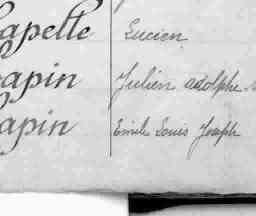 Capelle Lucien
Capin Julien adolphe
Capin Emile Louis Joseph